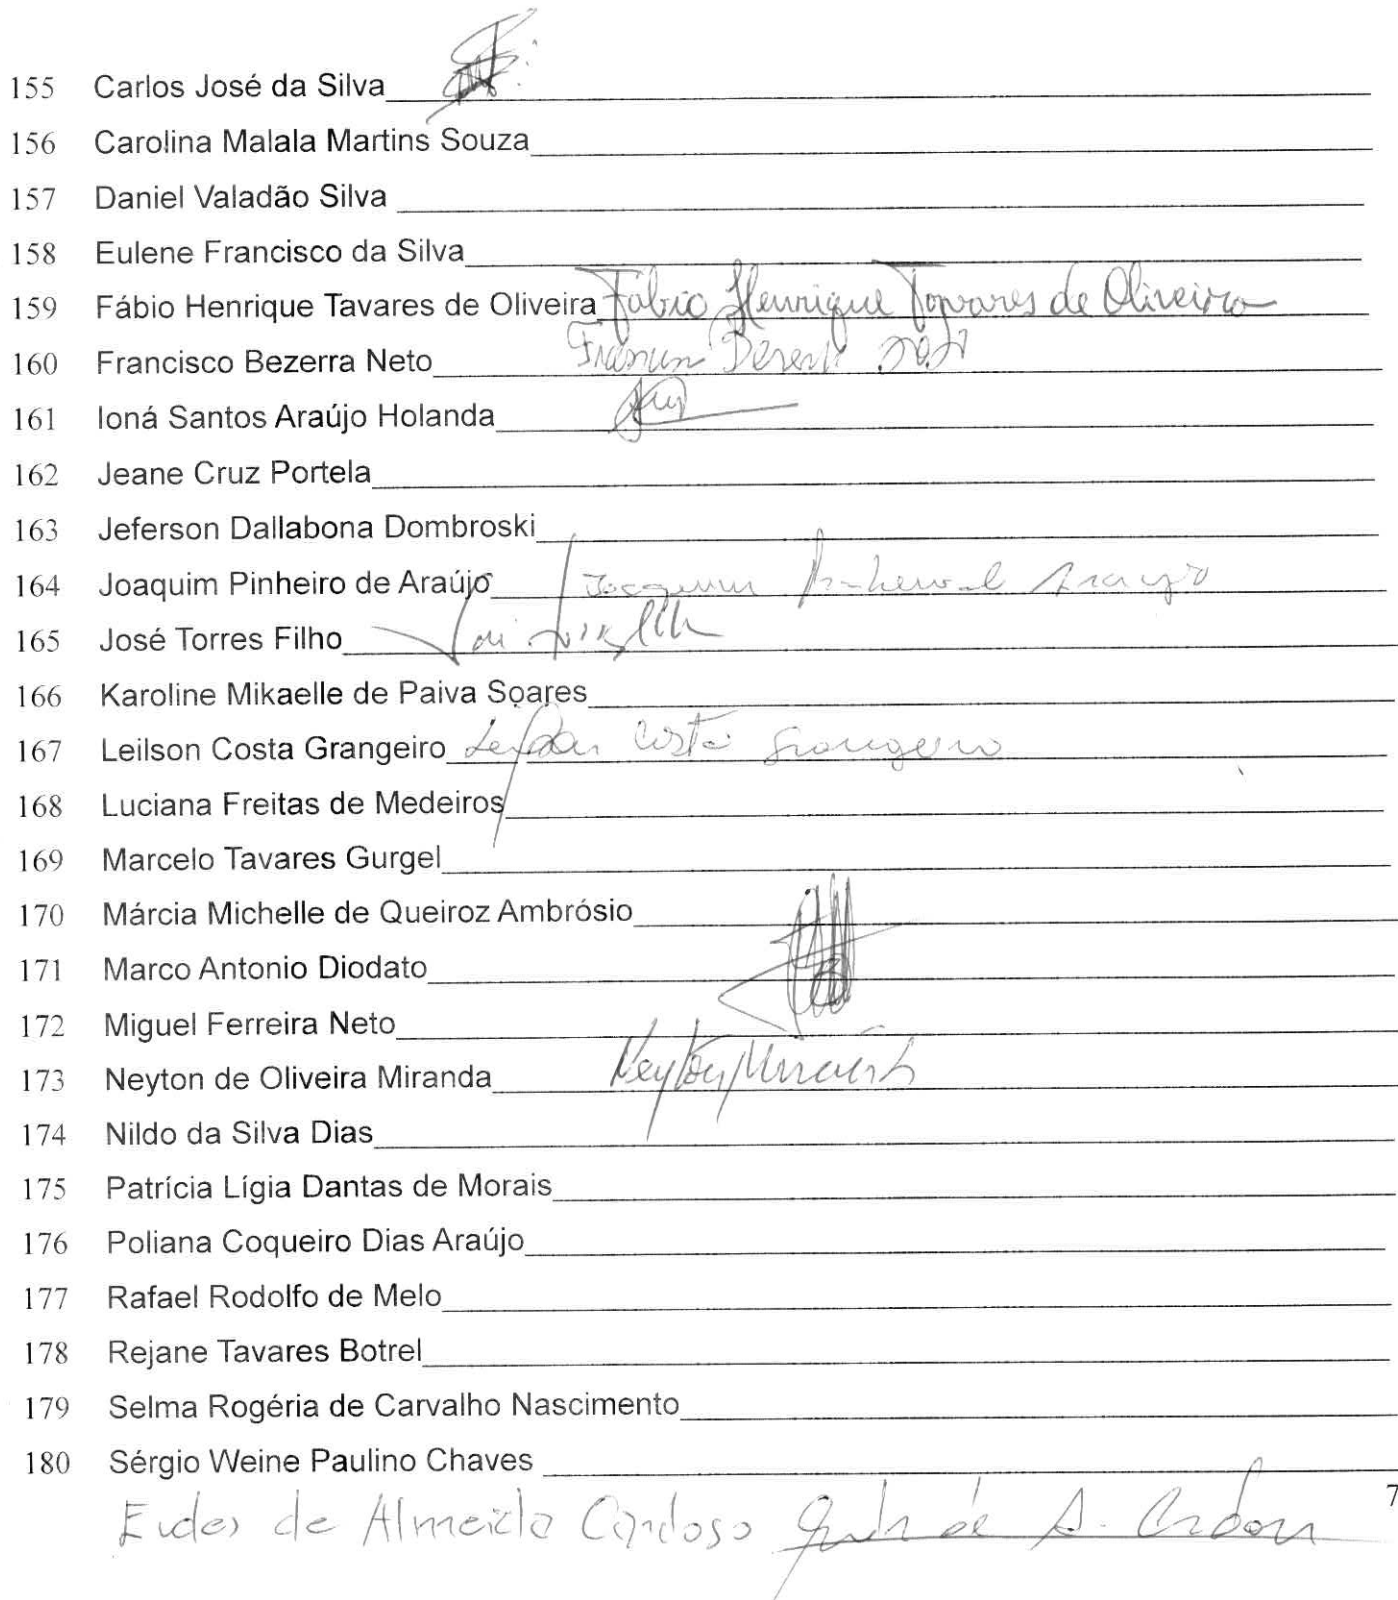 155 Carlos José da Silva
156 Carolina Malala Martins Souza
157 Daniel Valadão Silva
158 Eulene Francisco da Silva
159 Fábio Henrique Tavares de Oliveira Fábio Henrique Tavares de Oliveira
160 Francisco Bezerra Neto
161 Ioná Santos Araújo Holanda
162 Jeane Cruz Portela
163 Jeferson Dallabona Dombroski
164 Joaquim Pinheiro de Araújo Joaquim Pinheiro de Araujo
165 José Torres Filho
166 Karoline Mikaelle de Paiva Soares
167 Leilson Costa Grangeiro Leilson Costa Grangeiro
168 Luciana Freitas de Medeiros
169 Marcelo Tavares Gurgel
170 Márcia Michelle de Queiroz Ambrósio
171 Marco Antonio Diodato
172 Miguel Ferreira Neto
173 Neyton de Oliveira Miranda Neyton Miranda
174 Nildo da Silva Dias
175 Patrícia Lígia Dantas de Morais
176 Poliana Coqueiro Dias Araújo
177 Rafael Rodolfo de Melo
178 Rejane Tavares Botrel
179 Selma Rogéria de Carvalho Nascimento
180 Sérgio Weine Paulino Chaves
7
Eudes de Almeida Cardoso Eudes de A. Cardoso